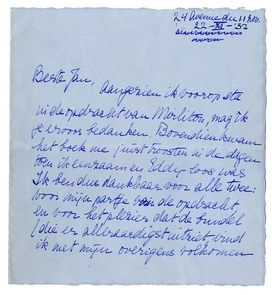 24 Avenue du 11 Nov.
22-XI-'32
Beste Jan,
Aangezien ik voorop sta
in de opdracht van Mirliton, mag ik
je ervoor bedanken. Bovendien kwam
het boek me juist troosten in de dagen
toen ik eenzaam en Eddy-loos was
Ik ben dus dankbaar voor alle twee:
voor mijn partje van de opdracht
en voor het plezier dat de bundel
(die er alleraardigst uitziet, vind
ik met mijn overigens volkomen